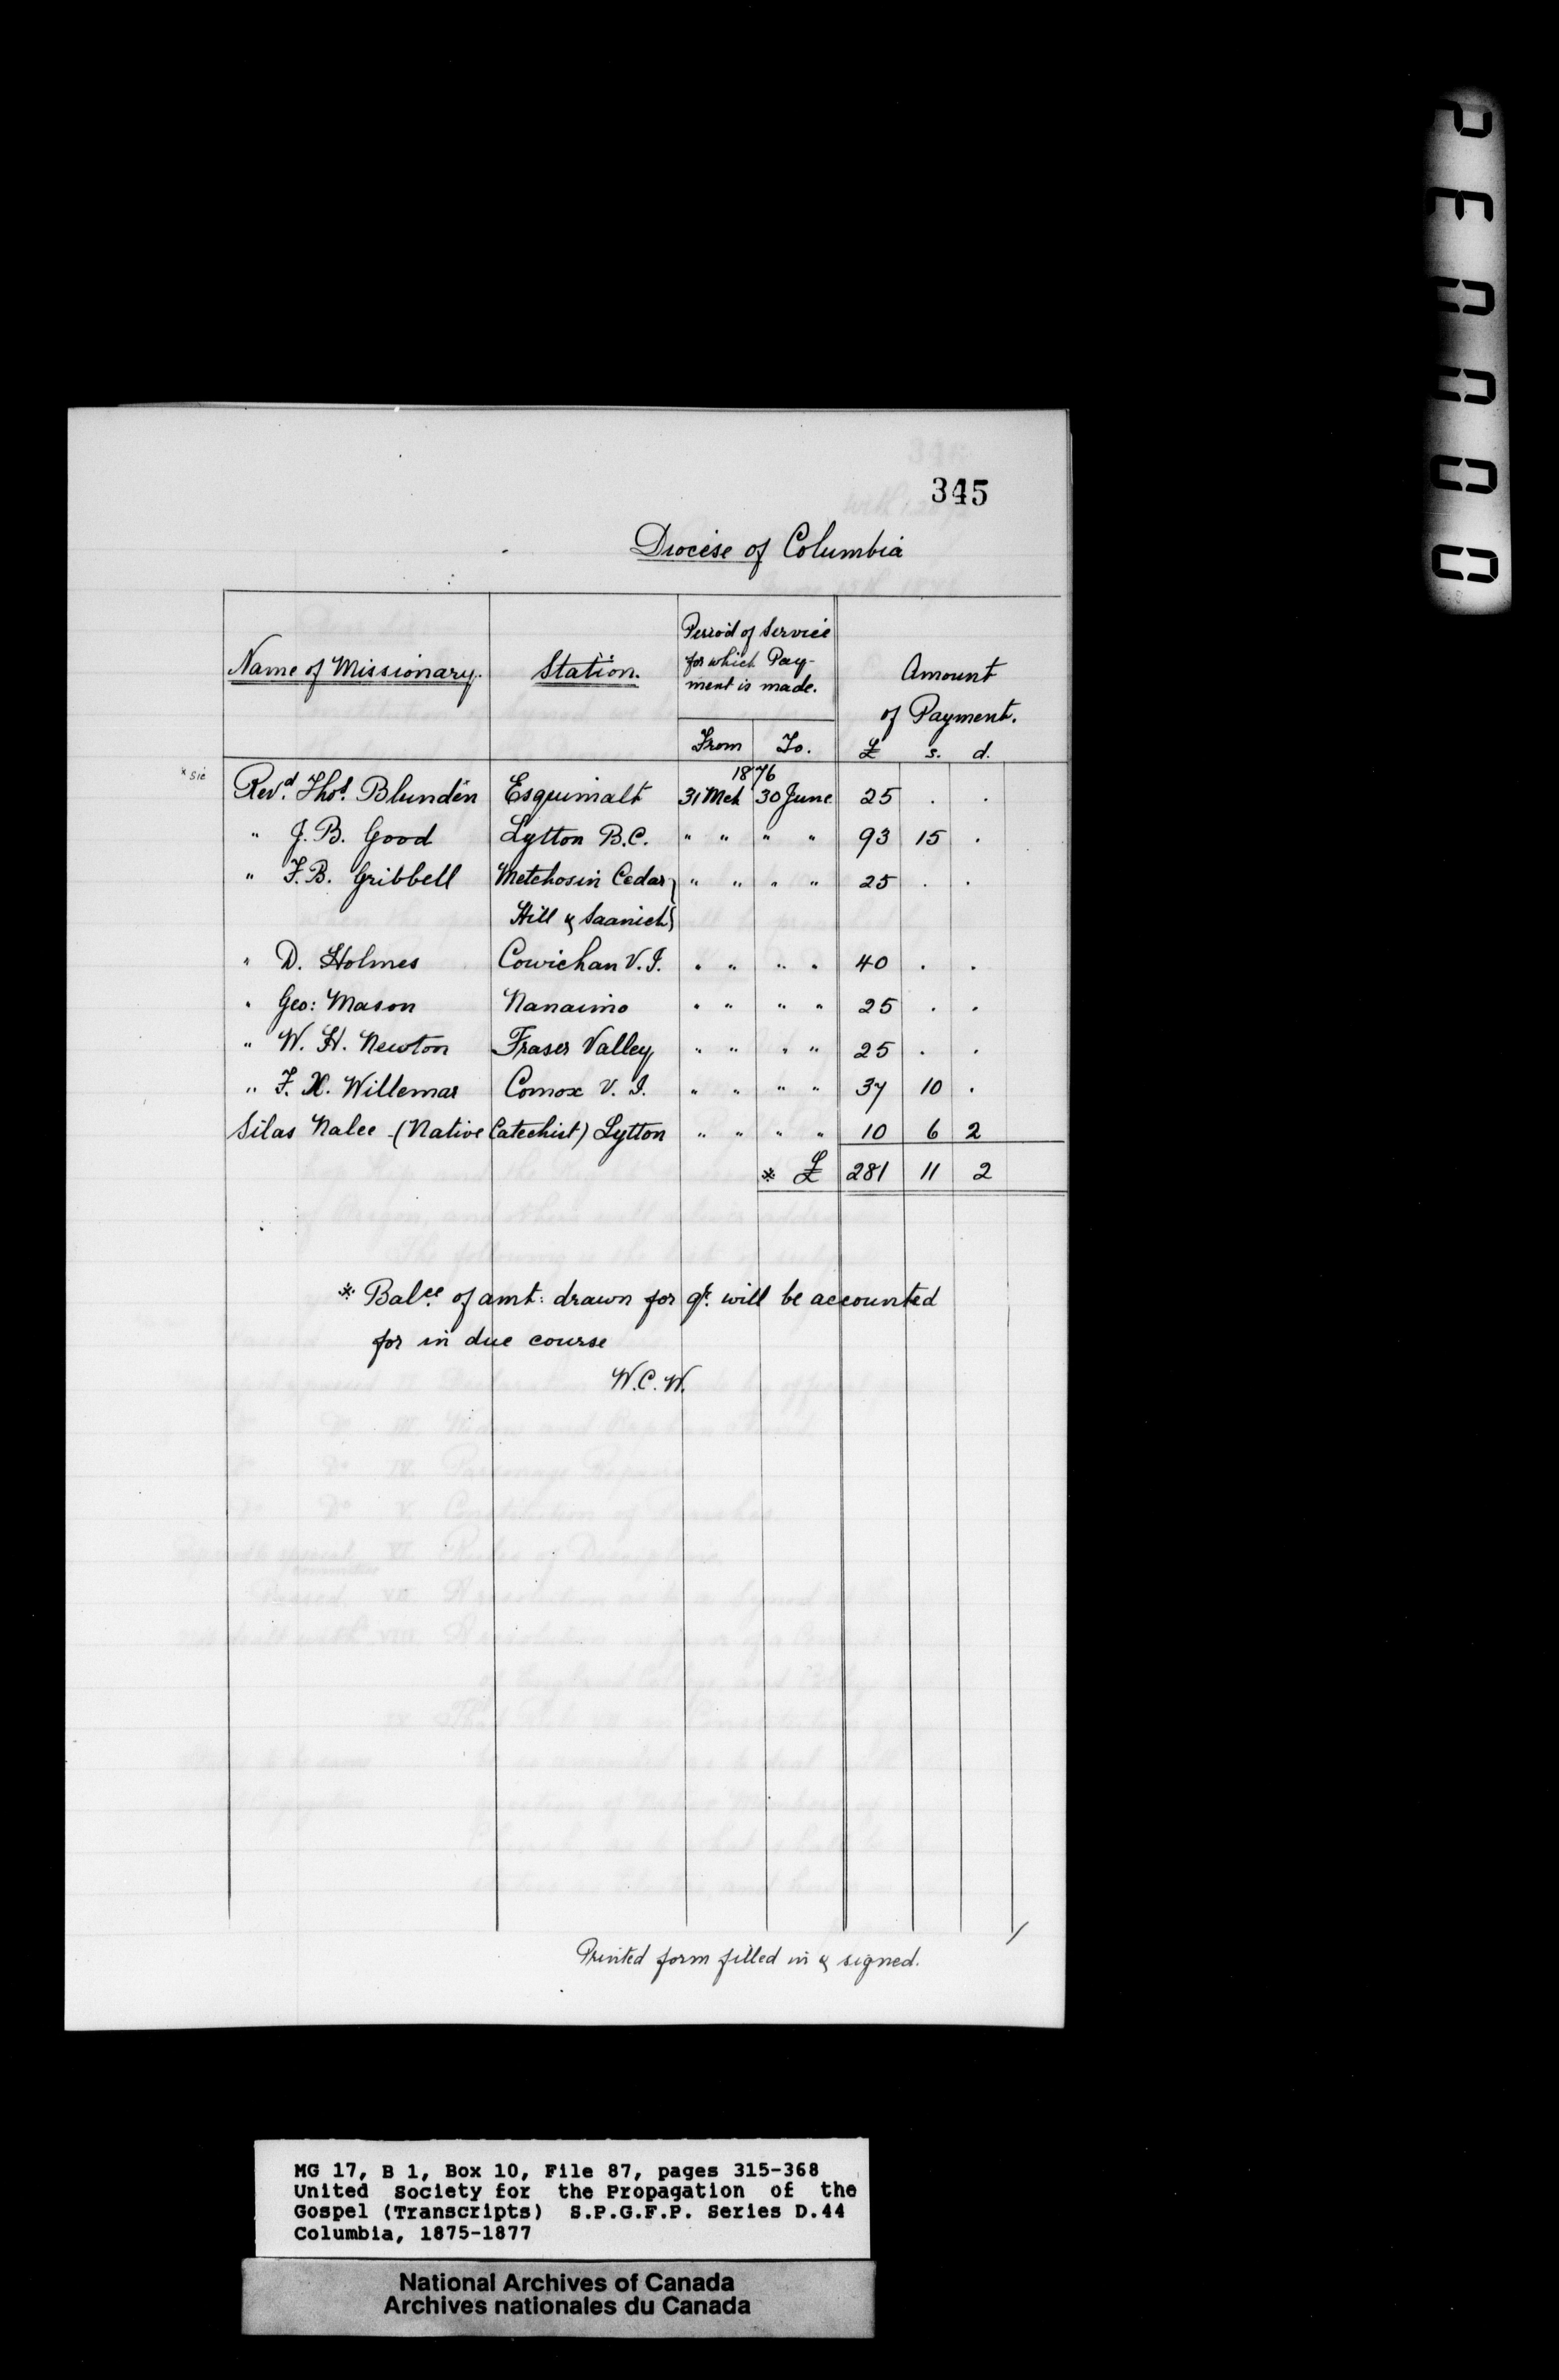 345
Diocese of Columbia
Name of Missionary.
Station.
Period of Service
for which Pay-
ment is made.
From To.
Amount
of Payment.
£ s. d.
1876
x sic
Revd. Thos. Blunden Esquimalt 31 Mch 30 June 25 . .
" J. B. Good Lytton B.C. " " " " 93 15 .
" F. B. Gribbell Metchosin Cedar } " " " " 25 . .
Hill & Saanich }
" D. Holmes Cowichan V. I. " " " " 40 . .
" Geo: Mason Nanaimo " " " " 25 . .
" W. H. Newton Fraser Valley " " " " 25 . .
" F. X. Willemar Comox V. I. " " " " 37 10 .
Silas Nalee - (Native Catechist) Lytton " " " " 10 6 2
* £ 281 11 2
* Balce. of amt: drawn for qr. will be accounted
for in due course
W. C. W.
Printed form filled in & signed.
MG 17, B 1, Box 10, File 87, pages 315-368
United Society for the Propagation of the
Gospel (Transcripts) S.P.G.F.P. Series D.44
Columbia, 1875-1877
National Archives of Canada
Archives nationales du Canada